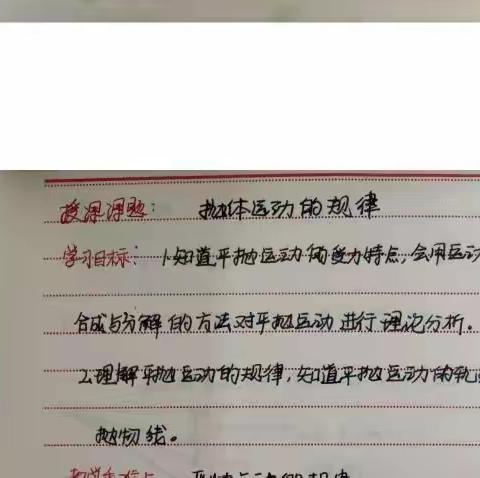 授课课题： 抛体运动的规律
学习目标： 1.知道平抛运动的受力特点，会用运动
合成与分解的方法对平抛运动进行理论分析。
2.理解平抛运动的规律，知道平抛运动的轨
抛物线。